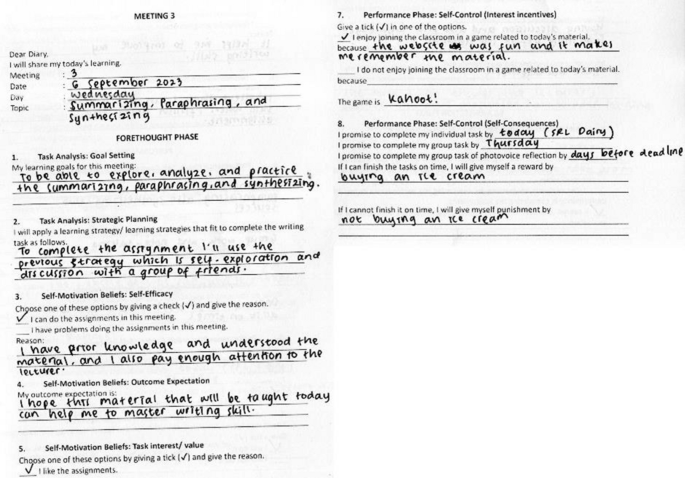 MEETING 3
Dear Diary,
I will share my today's learning.
Meeting : 3
Date : 6 September 2023
Day : Wednesday
Topic : Summarizing, Paraphrasing, and
Synthesizing
FORETHOUGHT PHASE
1. Task Analysis: Goal Setting
My learning goals for this meeting:
To be able to explore, analyze, and practice
the summarizing, paraphrasing, and synthesizing.
2. Task Analysis: Strategic Planning
I will apply a learning strategy/ learning strategies that fit to complete the writing
task as follows.
To complete the assignment I'll use the
previous strategy which is self-exploration and
discussion with a group of friends.
3. Self-Motivation Beliefs: Self-Efficacy
Choose one of these options by giving a check (√) and give the reason.
✓ I can do the assignments in this meeting.
__ I have problems doing the assignments in this meeting.
Reason:
I have prior knowledge and understood the
material, and I also pay enough attention to the
lecturer.
4. Self-Motivation Beliefs: Outcome Expectation
My outcome expectation is:
I hope this material that will be taught today
can help me to master writing skill.
5. Self-Motivation Beliefs: Task interest/ value
Choose one of these options by giving a tick (√) and give the reason.
✓ I like the assignments.
7. Performance Phase: Self-Control (Interest incentives)
Give a tick (√) in one of the options.
✓ I enjoy joining the classroom in a game related to today's material.
because the website was fun and it makes
me remember the material.
__ I do not enjoy joining the classroom in a game related to today's material.
because
The game is Kahoot!
8. Performance Phase: Self-Control (Self-Consequences)
I promise to complete my individual task by today (SRL Dairy)
I promise to complete my group task by Thursday
I promise to complete my group task of photovoice reflection by days before deadline
If I can finish the tasks on time, I will give myself a reward by
buying an ice cream
If I cannot finish it on time, I will give myself punishment by
not buying an ice cream